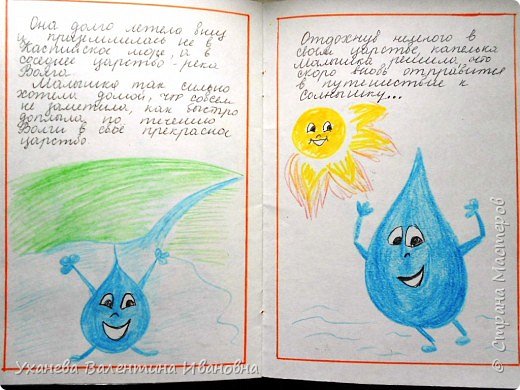 Она долго летела вниз
и приземлилась не в
Каспийское море, а в
соседнее царство - река
Волга.
Малышка так сильно
хотела домой, что совсем
не заметила, как быстро
доплыла по течению
Волги в своё прекрасное
царство.
Отдохнув немного в
своём царстве, капелька
Малышка решила, что
скоро вновь отправится
в путешествие к
солнышку...
Уханева Валентина Ивановна
© Страна Мастеров